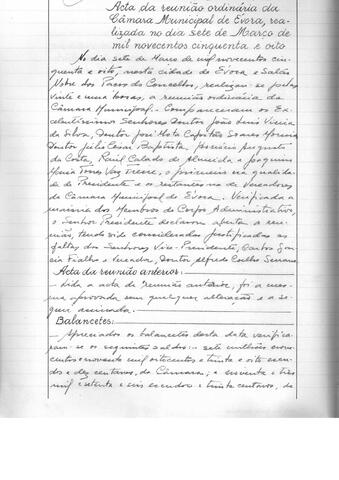 Acta da reunião ordinária da
Câmara Municipal de Évora, rea-
lizada no dia sete de Março de
mil novecentos cinquenta e oito
No dia sete de Março de mil novecentos cin-
quenta e oito, nesta cidade de Évora e Salão
Nobre dos Paços do Concelho, realizou-se pelas
vinte e uma horas, a reunião ordinária da
Câmara Municipal. Compareceram os Ex-
celentíssimos Senhores Doutor João Luis Vieira
da Silva, Doutor José Mota Capitão Soares Moreira
Doutor Júlio Cesar Baptista, Augusto
da Costa, Raúl Calado de Almeida e Joaquim
Maria Torres Vaz Freire, o primeiro na qualida-
de de Presidente e os restantes na de Vereadores
da Câmara Municipal de Évora. Verificada a
maioria dos Membros do Corpo Administrativo,
o Senhor Presidente declarou aberta a reu-
nião, tendo sido consideradas justificadas as
faltas dos Senhores Vice-Presidente, Carlos Gar-
cia Fialho e Vereador, Doutor Alfredo Coelho Serrano
Acta da reunião anterior:
Lida a acta da reunião anterior, foi a mes-
ma aprovada sem qualquer alteração e a se-
guir assinada.
Balancetes:
Apreciados os balancetes desta data verifica-
ram-se os seguintes saldos: sete milhões nove-
centos e noventa mil oitocentos e trinta e oito escu-
dos e dez centavos, da Câmara; e noventa e três
mil setenta e seis escudos e trinta centavos, do